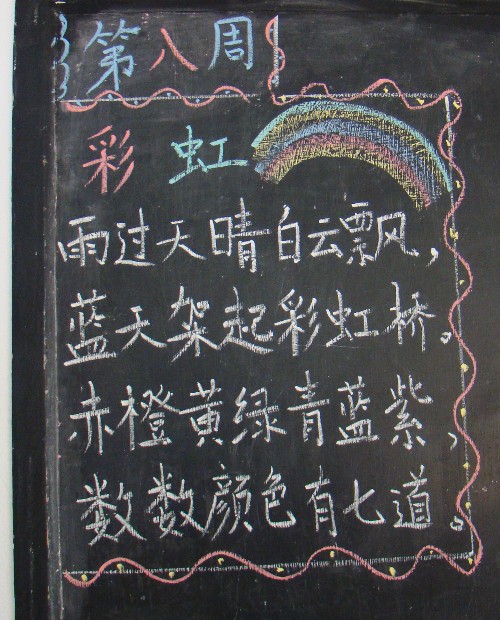 第八周
彩虹
雨过天晴白云飘风，
蓝天架起彩虹桥。
赤橙黄绿青蓝紫，
数数颜色有七道。